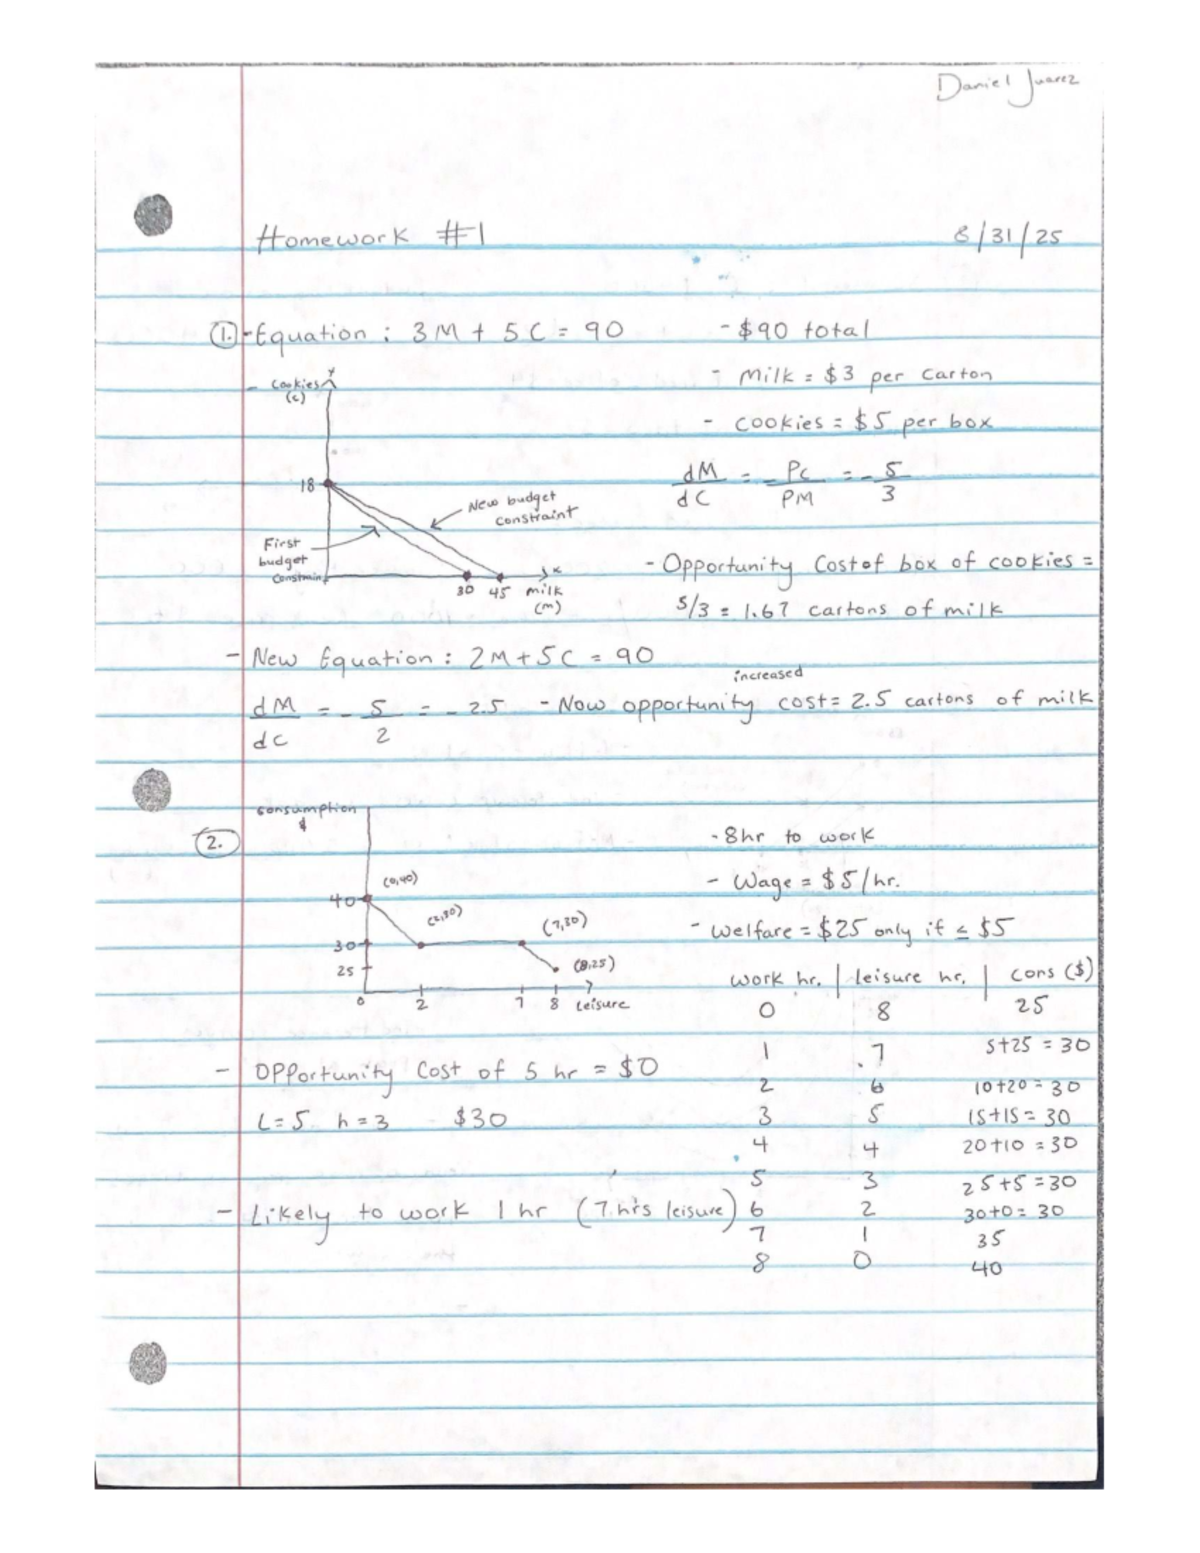 Daniel Juarez
Homework #1 8/31/25
1. - Equation : 3M + 5C = 90 - $90 total
- Milk = $3 per carton
- cookies = $5 per box
dM/dC = - PC/PM = - 5/3
- Cookies y
(c)
18
New budget
constraint
First
budget
Constrain
30 45 milk x
(m)
- Opportunity Cost of box of cookies =
5/3 = 1.67 cartons of milk
- New Equation : 2M + 5C = 90
increased
dM/dC = - 5/2 = - 2.5 - Now opportunity cost = 2.5 cartons of milk
2.
consumption
$
40 (0,40)
(2,30)
(7,30)
30
25 (8,25)
0 2 7 8 Leisure
- 8hr to work
- Wage = $5/hr.
- Welfare = $25 only if ≤ $5
work hr. | leisure hr. | cons ($)
0 8 25
1 7 5+25 = 30
2 6 10+20 = 30
3 5 15+15 = 30
4 4 20+10 = 30
5 3 25+5 = 30
6 2 30+0 = 30
7 1 35
8 0 40
- Opportunity Cost of 5 hr = $0
L = 5 h = 3 $30
- Likely to work 1 hr (7 hrs leisure)